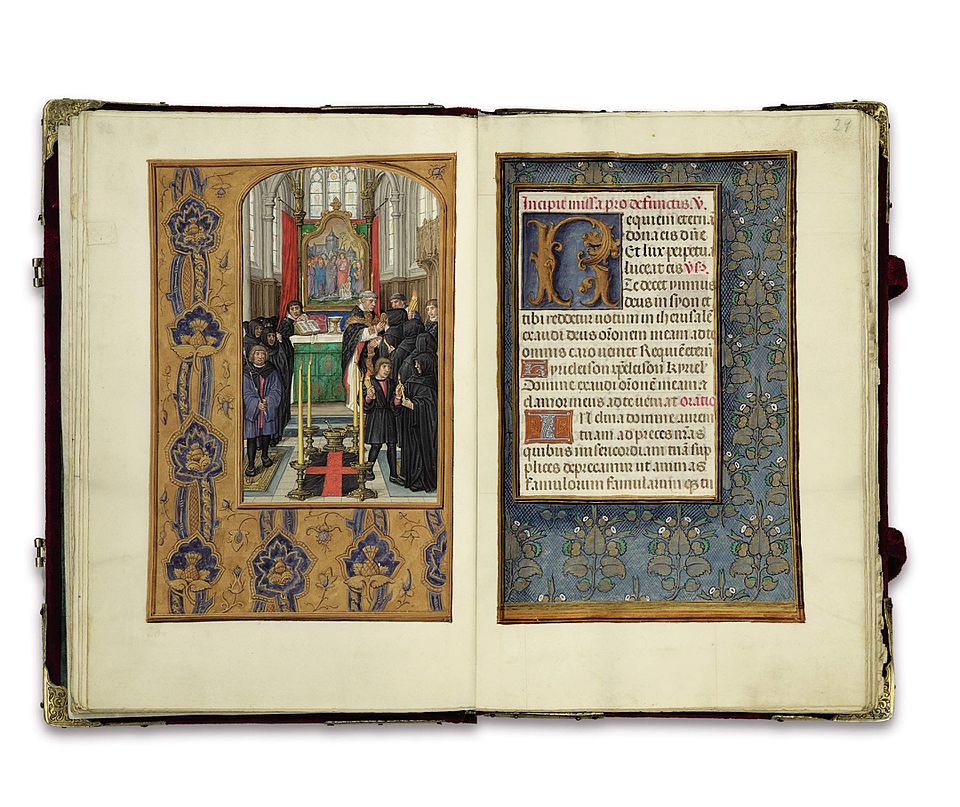 29
Incipit missa pro defunctis. V.
Requiem eterna
dona eis dn̄e
Et lux perpetua
luceat eis V̄s.
Te decet ymnus
deus in syon et
tibi reddetur uotum in iherusalē
exaudi deus orōnem meam ad te
omnis caro ueniet Requiē eternā
Kyrieleison xp̄eleison Kyriel̄
Domine exaudi orōnē meam Et
clamor meus ad te ueniat oratio
Inclina domine aurem
tuam ad preces nr̄as
quibus misericordiam tuā sup
plices deprecamur ut animas
famulorum famularum q̄ tu